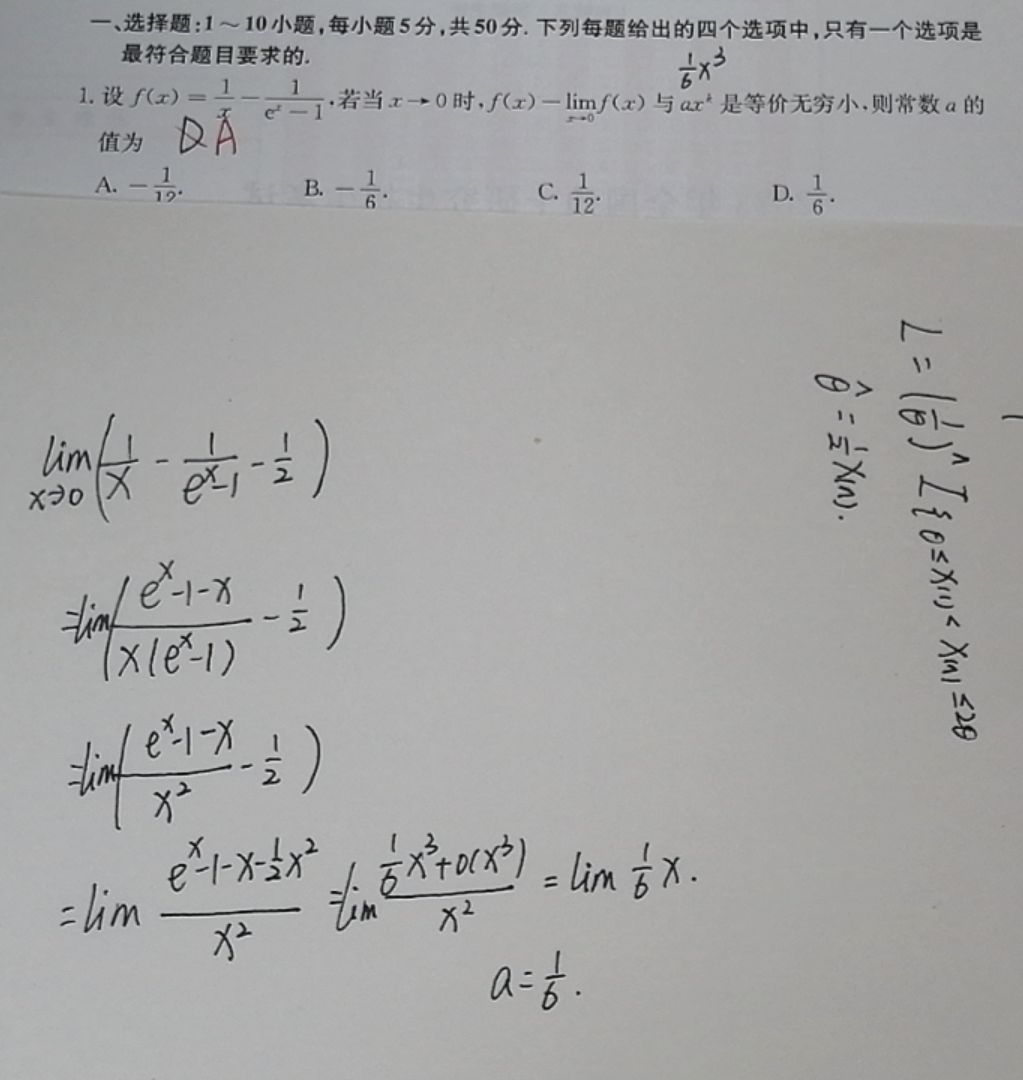 一、选择题:1~10小题,每小题5分,共50分. 下列每题给出的四个选项中,只有一个选项是
最符合题目要求的.
1/6 x³
1. 设 f(x) = 1/x − 1/(eˣ−1),若当 x→0 时,f(x) − lim_{x→0} f(x) 与 axᵏ 是等价无穷小,则常数 a 的
值为 D A
A. −1/12. B. −1/6. C. 1/12. D. 1/6.
lim_{x→0} (1/x − 1/(eˣ−1) − 1/2)
= lim ((eˣ−1−x)/(x(eˣ−1)) − 1/2)
= lim ((eˣ−1−x)/x² − 1/2)
= lim (eˣ−1−x−½x²)/x² = lim (1/6 x³+o(x³))/x² = lim 1/6 x.
a = 1/6.
L = (1/θ)ⁿ I{θ ≤ X(1) < X(n) ≤ 2θ
θ̂ = 1/2 X(n).